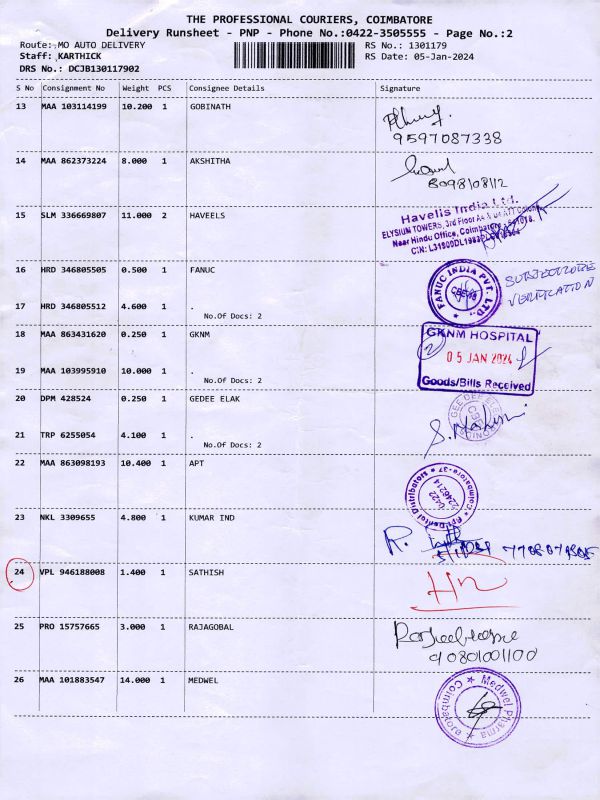 THE PROFESSIONAL COURIERS, COIMBATORE
Delivery Runsheet - PNP - Phone No.:0422-3505555 - Page No.:2
Route: MO AUTO DELIVERY RS No.: 1301179
Staff: KARTHICK RS Date: 05-Jan-2024
DRS No.: DCJB130117902
S No Consignment No Weight PCS Consignee Details Signature
13 MAA 103114199 10.200 1 GOBINATH
9597087338
14 MAA 862373224 8.000 1 AKSHITHA
8098108112
15 SLM 336669807 11.000 2 HAVEELS
Havells India Ltd.
ELYSIUM TOWERS, 3rd Floor
Near Hindu Office, Coimbatore
16 HRD 346805505 0.500 1 FANUC
FANUC INDIA PVT. LTD.
SUBJECT TO RE
VERIFICATION
17 HRD 346805512 4.600 1 .
No.Of Docs: 2
18 MAA 863431620 0.250 1 GKNM
GKNM HOSPITAL
2
05 JAN 2024
Goods/Bills Received
19 MAA 103995910 10.000 1 .
No.Of Docs: 2
20 DPM 428524 0.250 1 GEDEE ELAK
21 TRP 6255054 4.100 1 .
No.Of Docs: 2
22 MAA 863098193 10.400 1 APT
Dental Distributors
Coimbatore-37
0422
2246214
23 NKL 3309655 4.800 1 KUMAR IND
24 VPL 946188008 1.400 1 SATHISH
25 PRO 15757665 3.000 1 RAJAGOBAL
90801001100
26 MAA 101883547 14.000 1 MEDWEL
Medwel Pharma
Coimbatore